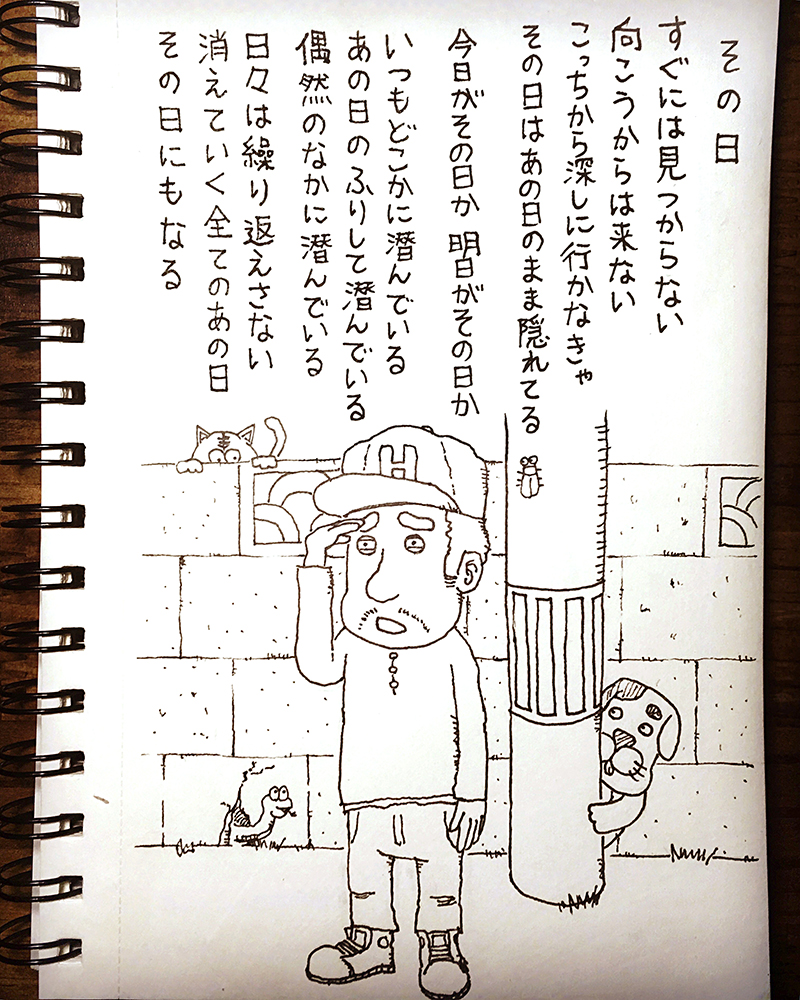 その日
すぐには見つからない
向こうからは来ない
こっちから深しに行かなきゃ
その日はあの日のまま隠れてる
今日がその日か 明日がその日か
いつもどこかに潜んでいる
あの日のふりして潜んでいる
偶然のなかに潜んでいる
日々は繰り返えさない
消えていく全てのあの日
その日にもなる
H